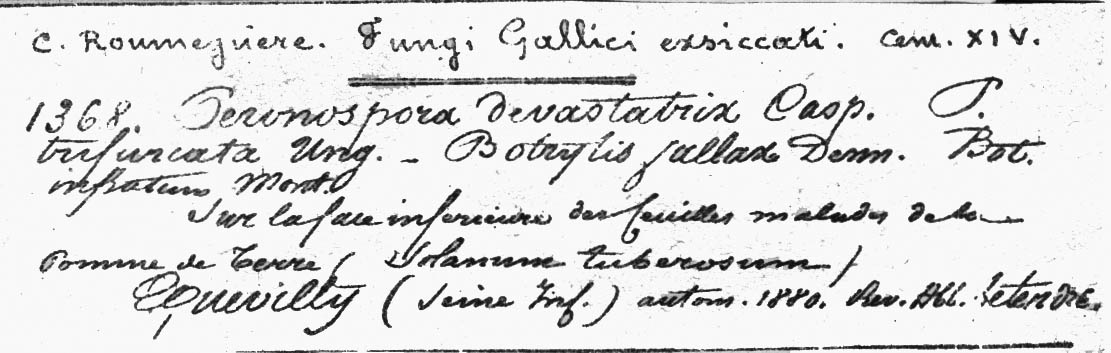 C. Roumeguere. Fungi Gallici exsiccati. Cent. XIV.
1368. Peronospora devastatrix Casp. P.
trifurcata Ung. - Botrytis fallax Desm. Bot.
infestans Mont.
Sur la face inferieure des feuilles malades de la
Pomme de Terre ( Solanum tuberosum )
Quevilly ( Seine Inf. ) autom. 1880. Rev. Abb. Letendre.